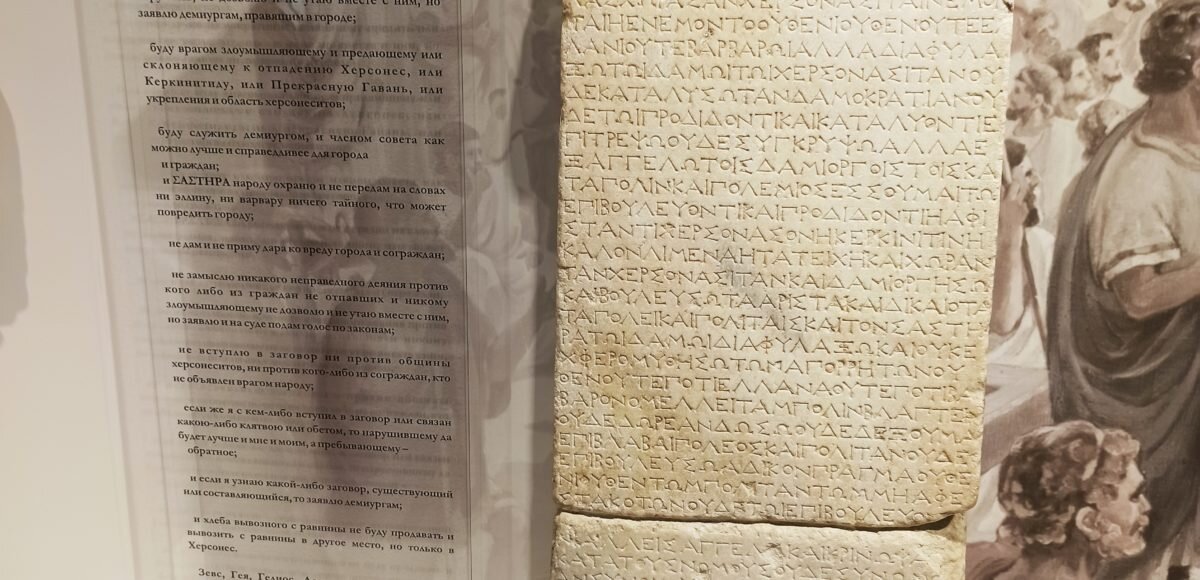 заявлю демиургам, правящим в городе;
буду врагом злоумышляющему и предающему или
склоняющему к отпадению Херсонес, или
Керкинитиду, или Прекрасную Гавань, или
укрепления и область херсонеситов;
буду служить демиургом, и членом совета как
можно лучше и справедливее для города
и граждан;
и ΣΑΣΤΗΡΑ народу охраню и не передам на словах
ни эллину, ни варвару ничего тайного, что может
повредить городу;
не дам и не приму дара ко вреду города и сограждан;
не замыслю никакого неправедного деяния против
кого либо из граждан не отпавших и никому
злоумышляющему не дозволю и не утаю вместе с ним,
но заявлю и на суде подам голос по законам;
не вступлю в заговор ни против общины
херсонеситов, ни против кого-либо из сограждан, кто
не объявлен врагом народу;
если же я с кем-либо вступил в заговор или связан
какою-либо клятвою или обетом, то нарушившему да
будет лучше и мне и моим, а пребывающему –
обратное;
и если я узнаю какой-либо заговор, существующий
или составляющийся, то заявлю демиургам;
и хлеба вывозного с равнины не буду продавать и
вывозить с равнины в другое место, но только в
Херсонес.
Зевс, Гея, Гелиос,
ΤΑΙΗΕΝΕΜΟΝΤΟΟΥΘΕΝΙΟΥΘΕΝΟΥΤΕΕΛ
ΛΑΝΙΟΥΤΕΒΑΡΒΑΡΩΙΑΛΛΑΔΙΑΦΥΛΑ
ΞΩΤΩΙΔΑΜΩΙΤΩΙΧΕΡΣΟΝΑΣΙΤΑΝΟΥ
ΔΕΚΑΤΑΛΥΣΩΤΑΝΔΑΜΟΚΡΑΤΙΑΝΟΥ
ΔΕΤΩΙΠΡΟΔΙΔΟΝΤΙΚΑΙΚΑΤΑΛΥΟΝΤΙΕ
ΠΙΤΡΕΨΩΟΥΔΕΣΥΓΚΡΥΨΩΑΛΛΑΕ
ΞΑΓΓΕΛΩΤΟΙΣΔΑΜΙΟΡΓΟΙΣΤΟΙΣΚΑ
ΤΑΠΟΛΙΝΚΑΙΠΟΛΕΜΙΟΣΕΣΣΟΥΜΑΙΤΩΙ
ΕΠΙΒΟΥΛΕΥΟΝΤΙΚΑΙΠΡΟΔΙΔΟΝΤΙΗΑΦΙ
ΣΤΑΝΤΙΧΕΡΣΟΝΑΣΟΝΗΚΕΡΚΙΝΙΤΙΝΗ
ΚΑΛΟΝΛΙΜΕΝΑΗΤΑΤΕΙΧΗΚΑΙΧΩΡΑΝ
ΤΑΝΧΕΡΣΟΝΑΣΙΤΑΝΚΑΙΔΑΜΙΟΡΓΗΣΩ
ΚΑΙΒΟΥΛΕΥΣΩΤΑΑΡΙΣΤΑΚΑΙΔΙΚΑΙΟΤΑ
ΤΑΠΟΛΕΙΚΑΙΠΟΛΙΤΑΙΣΚΑΙΤΟΝΣΑΣΤΗ
ΡΑΤΩΙΔΑΜΩΙΔΙΑΦΥΛΑΞΩΚΑΙΟΥΚΕ
ΧΦΕΡΟΜΥΘΗΣΩΤΩΜΑΠΟΡΡΗΤΩΝΟΥ
ΘΕΝΟΥΤΕΠΟΤΙΕΛΛΑΝΑΟΥΤΕΠΟΤΙΒΑ
ΒΑΡΟΝΟΜΕΛΛΕΙΤΑΜΠΟΛΙΝΒΛΑΠΤΕΙ
ΟΥΔΕΔΩΡΕΑΝΔΩΣΩΟΥΔΕΔΕΞΟΥΜΑΙ
ΕΠΙΒΛΑΒΑΙΠΟΛΕΟΣΚΑΙΠΟΛΙΤΑΝΟΥΔΕ
ΕΠΙΒΟΥΛΕΥΣΩΑΔΙΚΟΝΠΡΑΓΜΑΟΥΘΕ
ΝΙΟΥΘΕΝΤΩΜΠΟΛΙΤΑΝΤΩΜΜΗΑΦΕ
ΣΤΑΚΟΤΩΝΟΥΔΕΤΩΙΕΠΙΒΟΥΛΕΥΟΝ